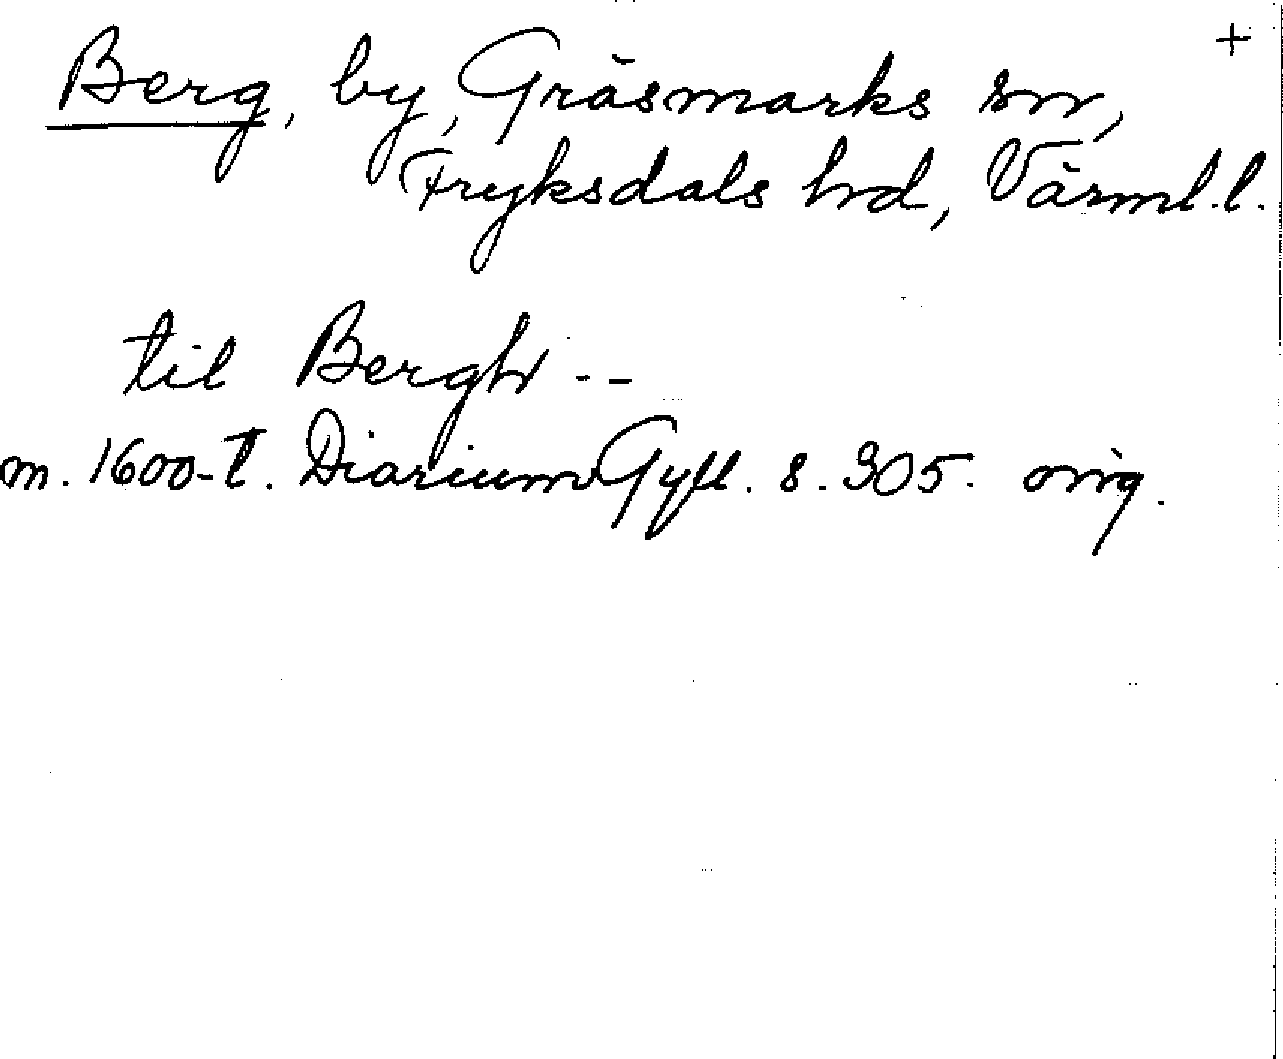 +
Berg, by, Gräsmarks sn,
Fryksdals hd, Värml.l.
til Bergh --
m. 1600-t. Diarium Gyll. s. 305. orig.